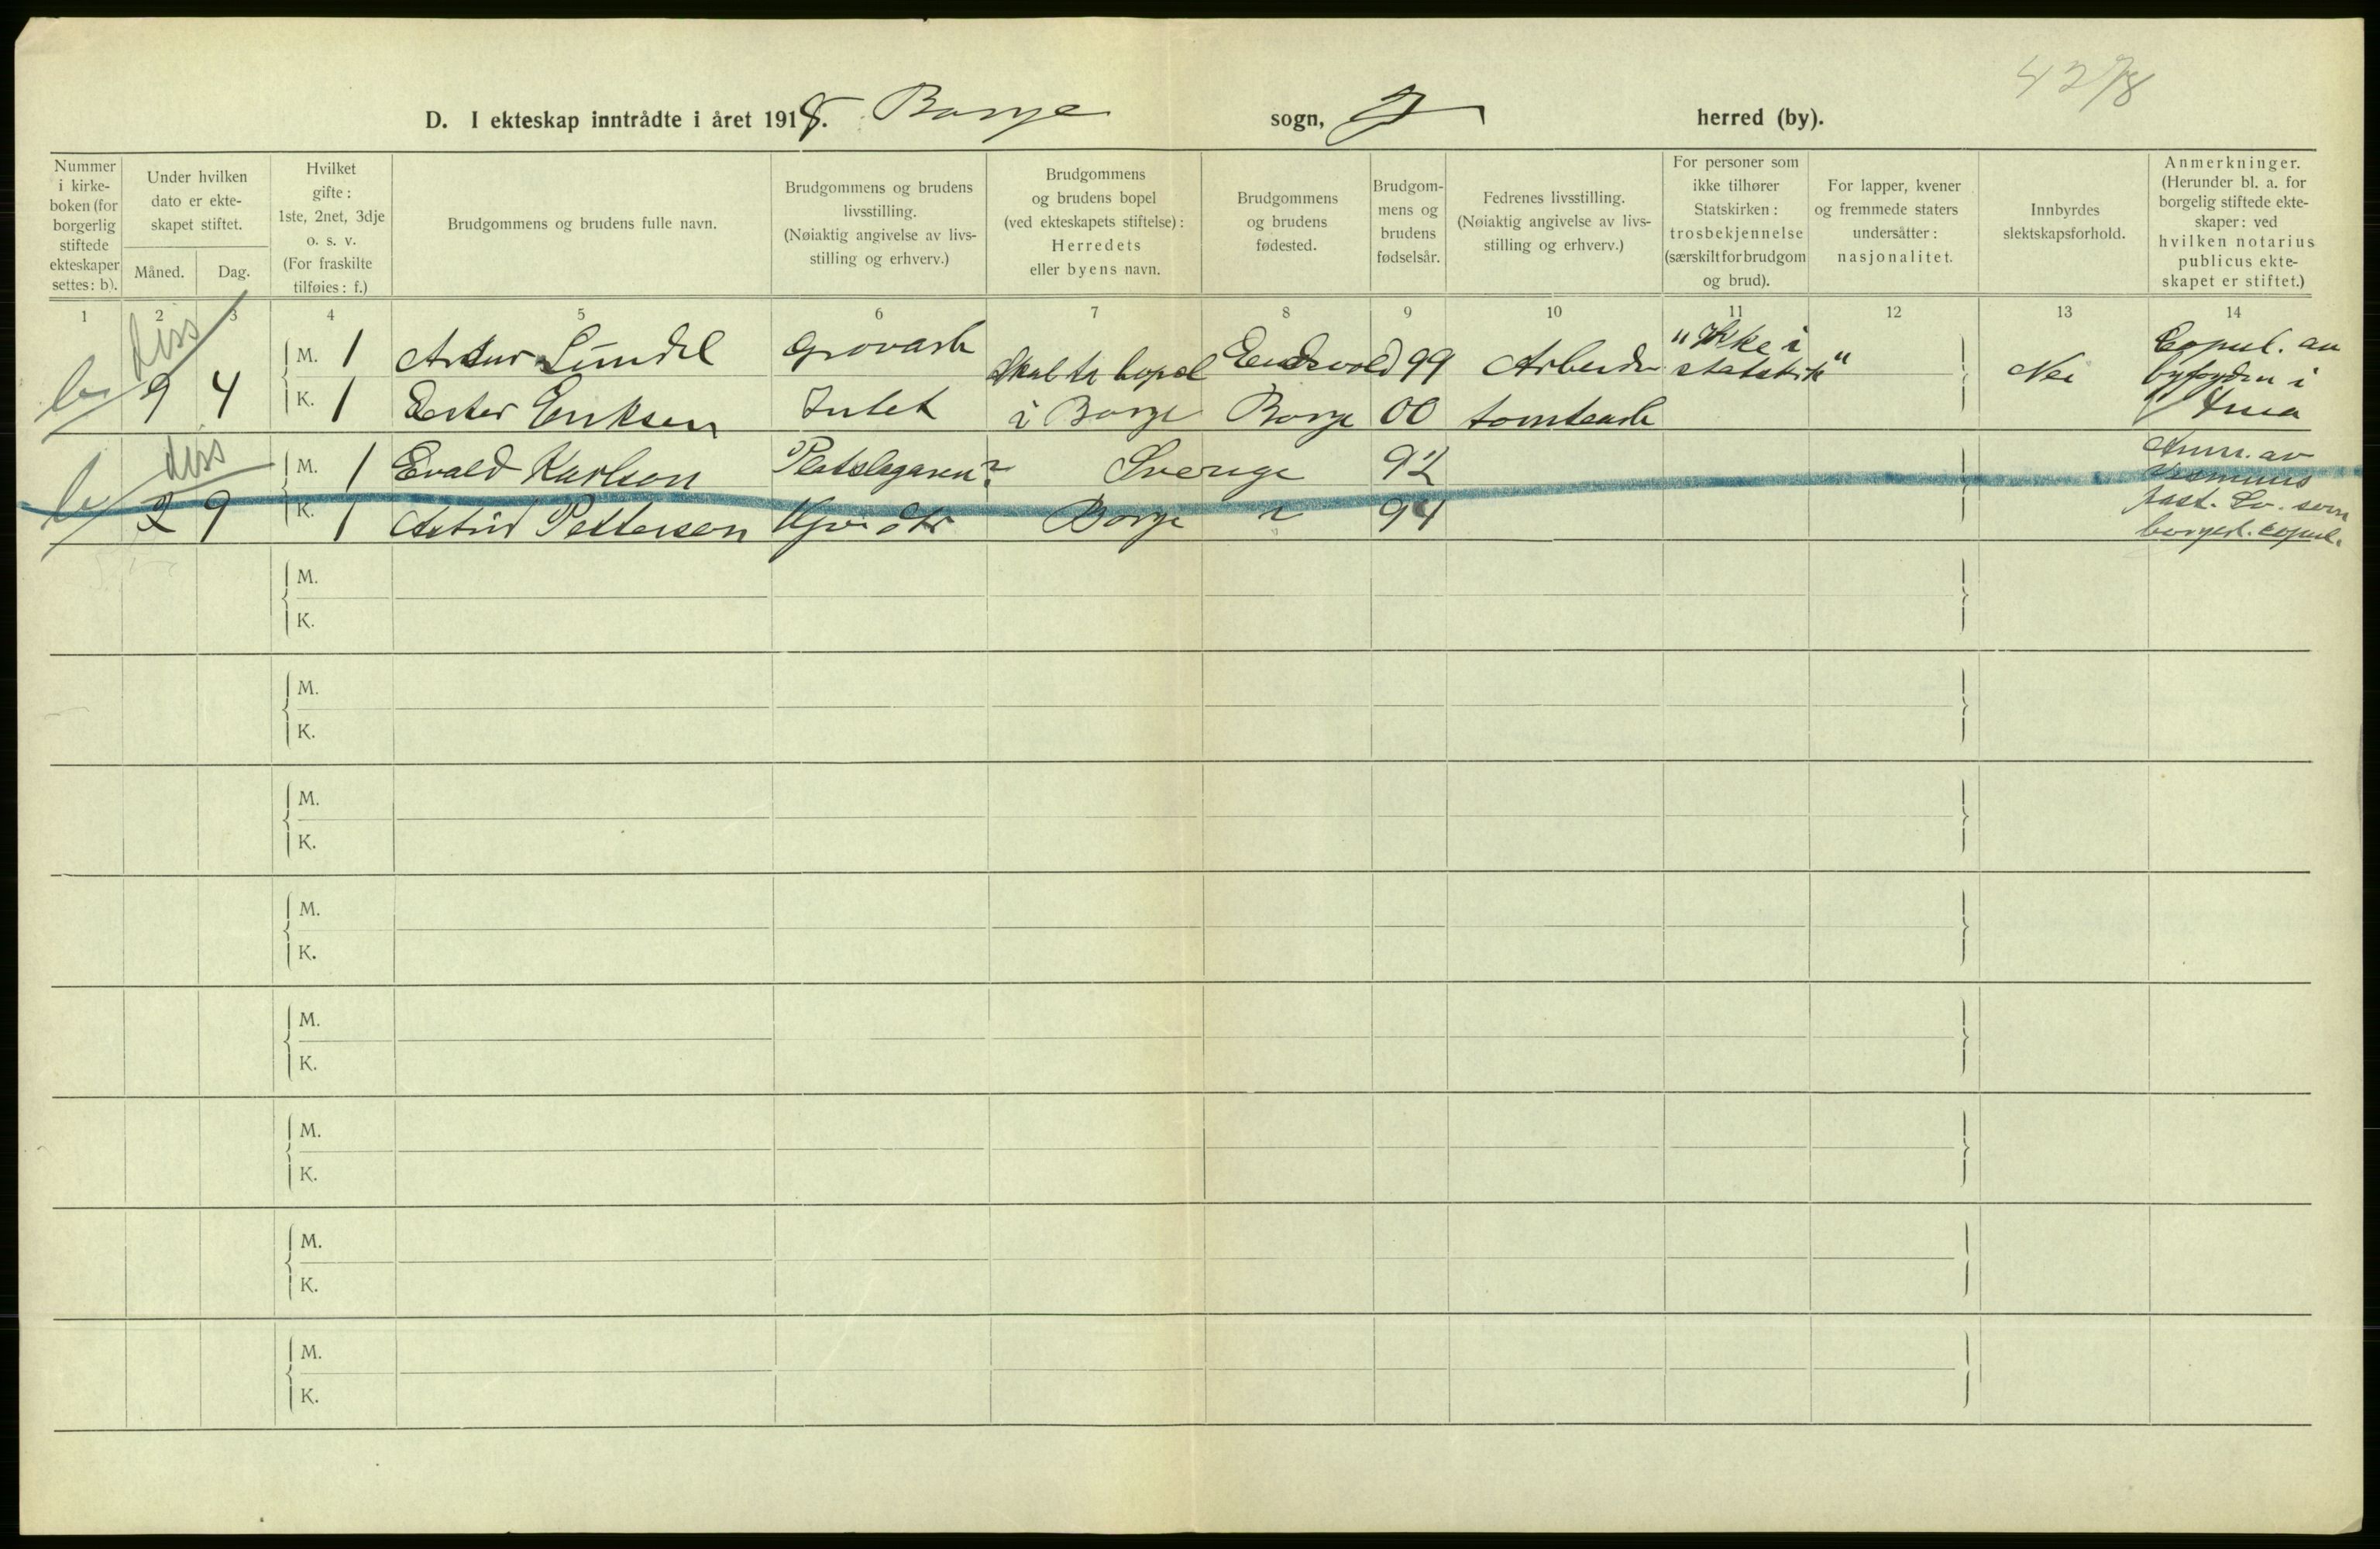 4278
D. I ekteskap inntrådte i året 1918. Borge sogn, herred (by).
Nummer i kirke-boken (for borgerlig stiftede ekteskaper settes: b).
Under hvilken dato er ekte-skapet stiftet.
Måned. Dag.
Hvilket gifte: 1ste, 2net, 3dje o. s. v. (For fraskilte tilføies: f.)
Brudgommens og brudens fulle navn.
Brudgommens og brudens livsstilling. (Nøiaktig angivelse av livs-stilling og erhverv.)
Brudgommens og brudens bopel (ved ekteskapets stiftelse): Herredets eller byens navn.
Brudgommens og brudens fødested.
Brudgom-mens og brudens fødselsår.
Fedrenes livsstilling. (Nøiaktig angivelse av livs-stilling og erhverv.)
For personer som ikke tilhører Statskirken: trosbekjennelse (særskilt for brudgom og brud).
For lapper, kvener og fremmede staters undersåtter: nasjonalitet.
Innbyrdes slektskapsforhold.
Anmerkninger. (Herunder bl. a. for borgelig stiftede ekte-skaper: ved hvilken notarius publicus ekte-skapet er stiftet.)
1 2 3 4 5 6 7 8 9 10 11 12 13 14
diss
M. 1 Artur Lundel Grovarb Eidsvold 99 Arbeider "Ikke i statskirk" Copul. av
b 9 4 Skal ta bopel Nei byfogden i
K. 1 Ester Eriksen Intet i Borge Borge 00 tomtearb
diss
M. 1 Evald Karlson Platslagaren? Sverige 92 Anm. av
b 2 9
K. 1 Astrid Pettersen Borge 94 past. Lv. som
borgerl. copul.
M.
K.
M.
K.
M.
K.
M.
K.
M.
K.
M.
K.
M.
K.
M.
K.